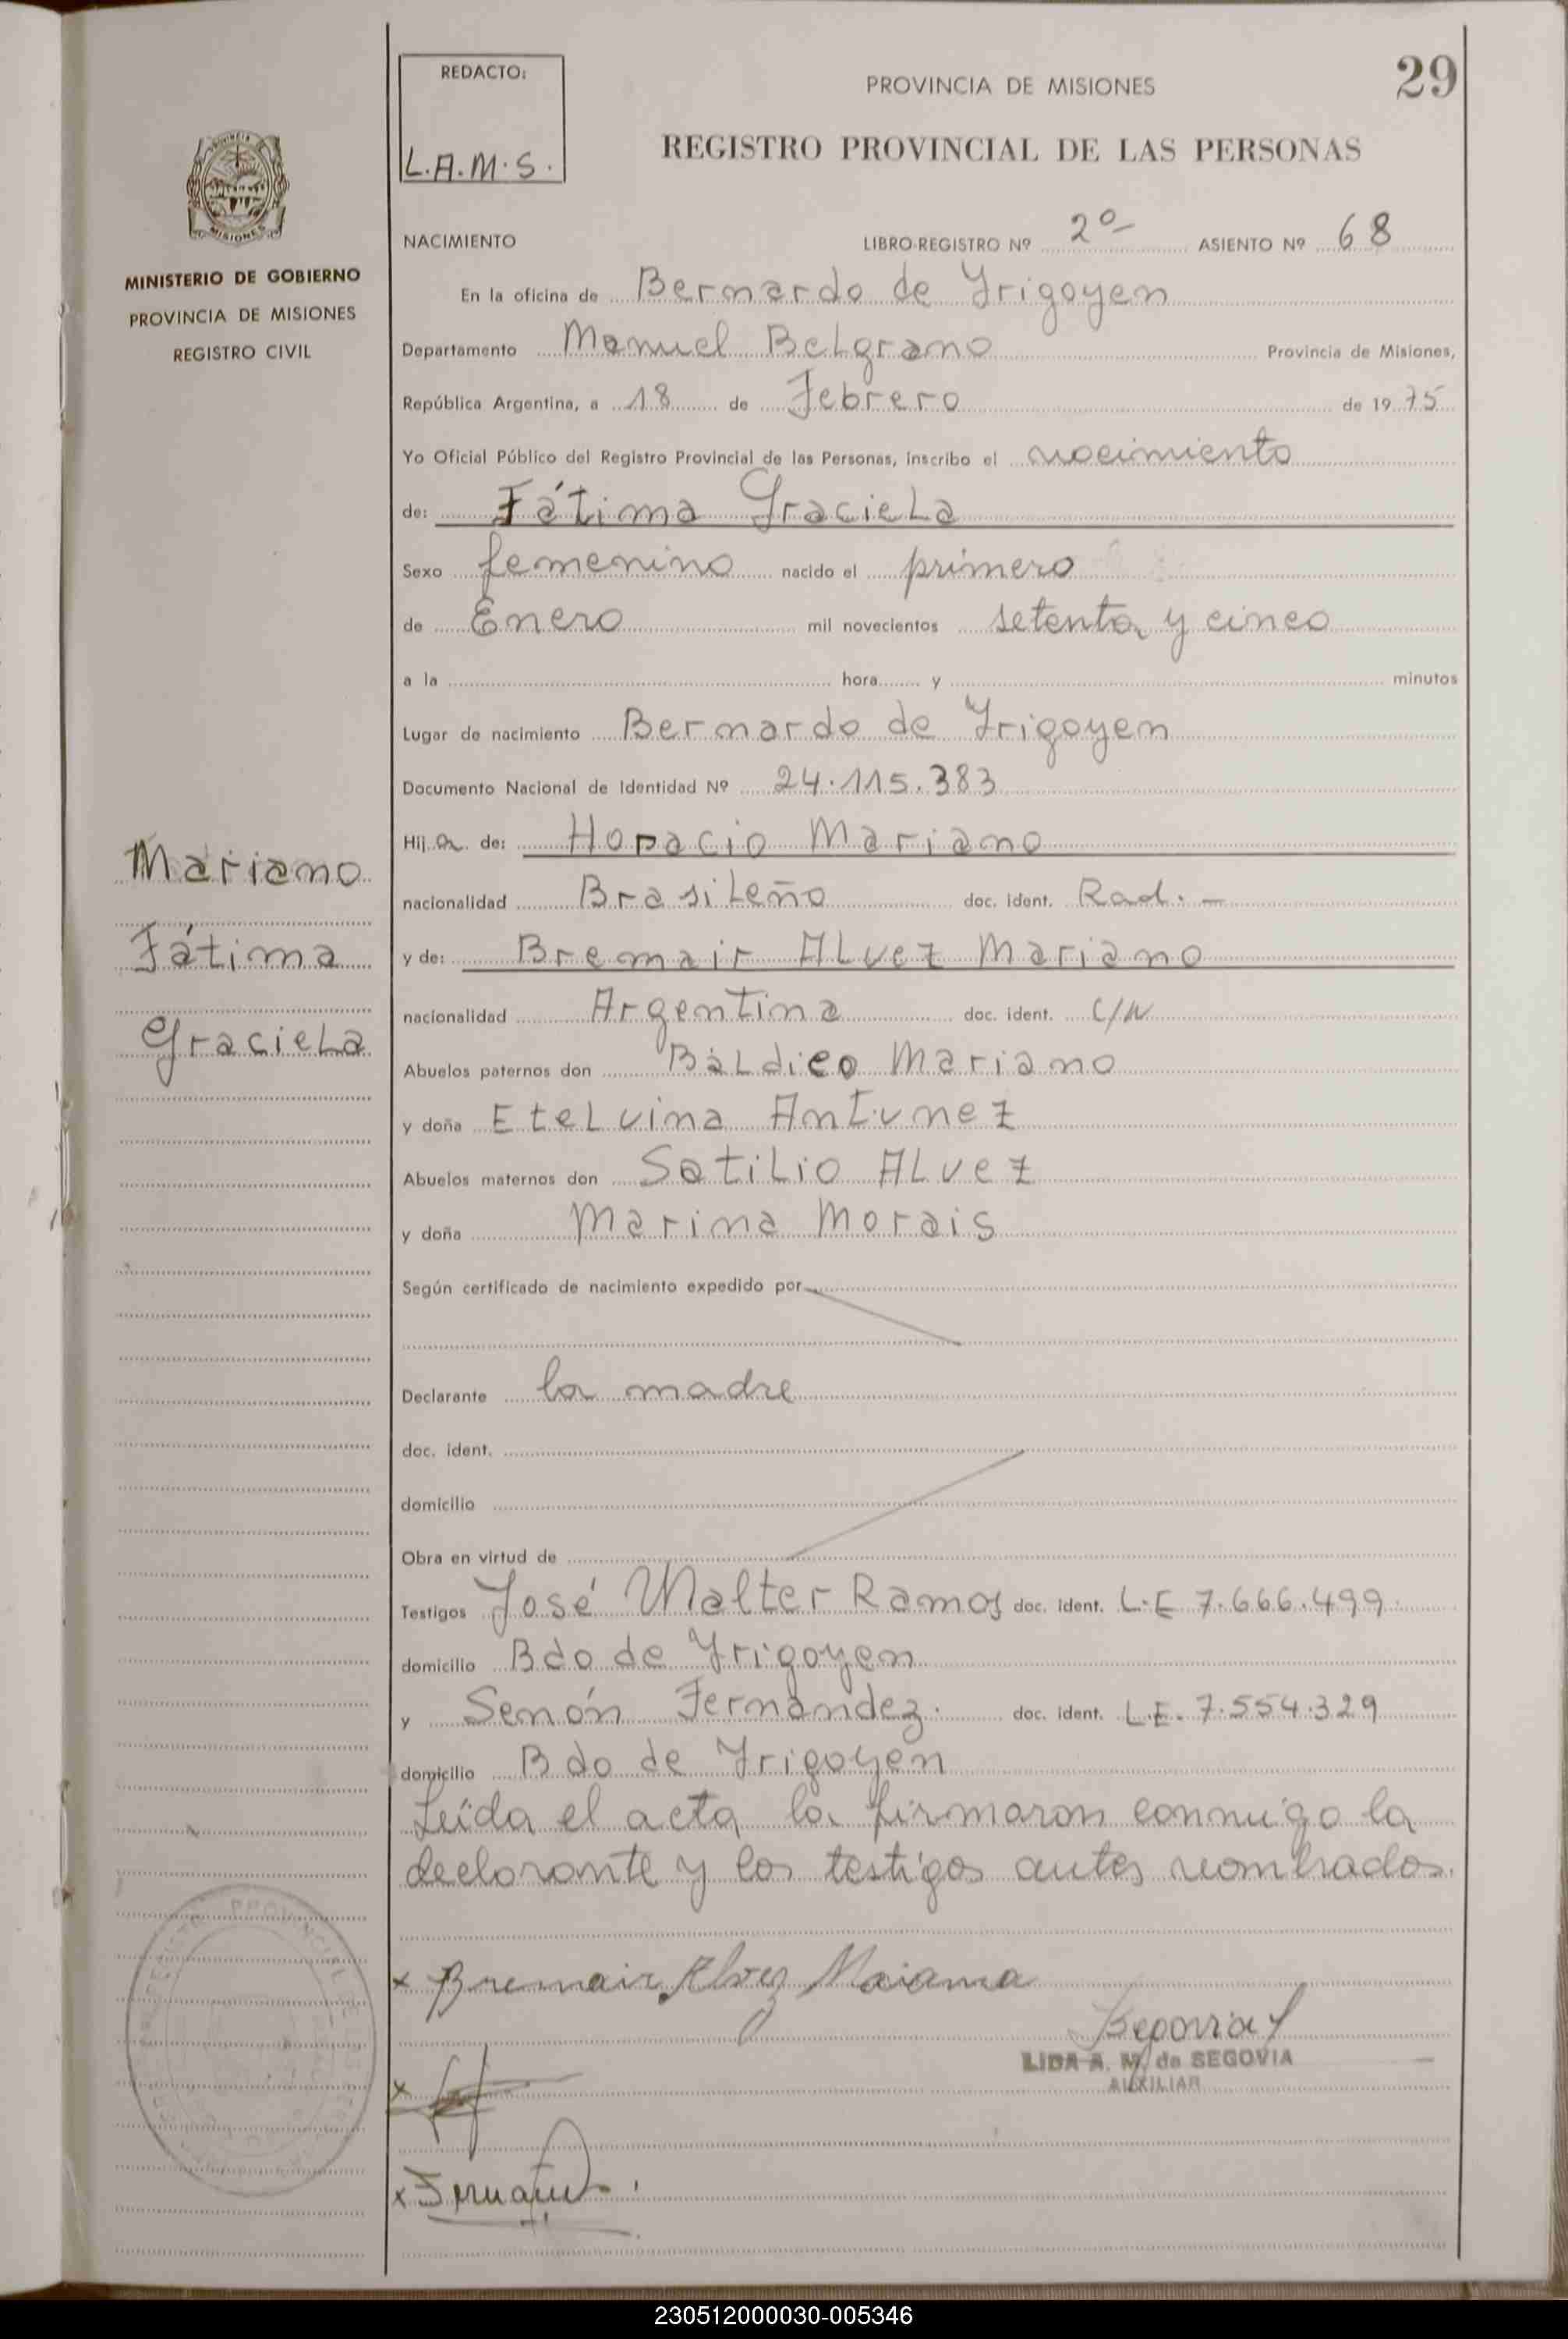 29
REDACTO:
L.A.M.S.
PROVINCIA DE MISIONES
REGISTRO PROVINCIAL DE LAS PERSONAS
MISIONES
MINISTERIO DE GOBIERNO
PROVINCIA DE MISIONES
REGISTRO CIVIL
NACIMIENTO LIBRO-REGISTRO Nº 2º- ASIENTO Nº 68
En la oficina de Bernardo de Yrigoyen
Departamento Manuel Belgrano Provincia de Misiones,
República Argentina, a 18 de Febrero de 1975
Yo Oficial Público del Registro Provincial de las Personas, inscribo el nacimiento
de: Fátima Graciela
Sexo femenino nacido el primero
de Enero mil novecientos setenta y cinco
a la hora y minutos
Lugar de nacimiento Bernardo de Yrigoyen
Documento Nacional de Identidad Nº 24.115.383
Hija de: Horacio Mariano
nacionalidad Brasileño doc. ident. Rad. -
y de: Bremair Alvez Mariano
nacionalidad Argentina doc. ident. C/N
Abuelos paternos don Baldico Mariano
y doña Etelvina Antunez
Abuelos maternos don Satilio Alvez
y doña Marina Morais
Según certificado de nacimiento expedido por
Declarante la madre
doc. ident.
domicilio
Obra en virtud de
Testigos José Walter Ramos doc. ident. L.E 7.666.499
domicilio Bdo de Yrigoyen
y Senón Fernández. doc. ident. L.E. 7.554.329
domicilio Bdo de Yrigoyen
Leída el acta la firmaron conmigo la
declarante y los testigos antes nombrados.
Mariano
Fátima
Graciela
x Bremair Alvez Maiana
Segovia
LIDA A. M. de SEGOVIA
AUXILIAR
x
x
230512000030-005346